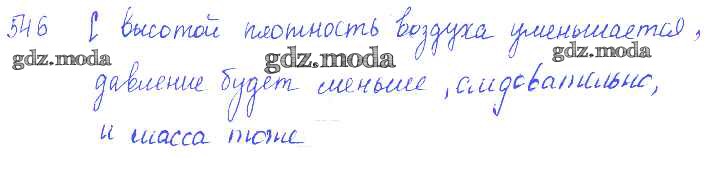 546 С высотой плотность воздуха уменьшается,
gdz.moda gdz.moda gdz.moda
давление будет меньше, следовательно,
и масса тоже